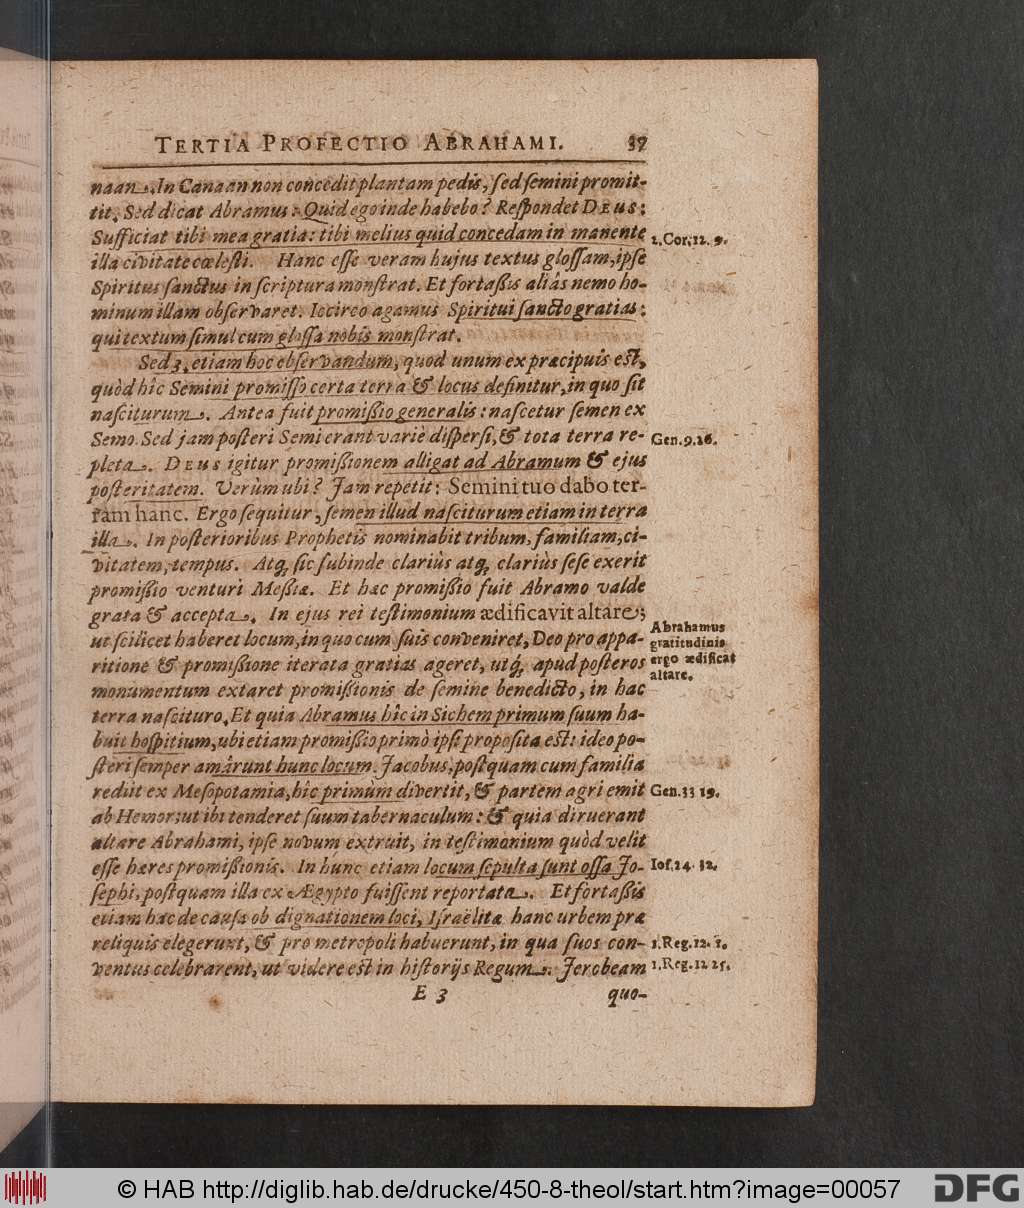 TERTIA PROFECTIO ABRAHAMI. 37
naan. In Canaan non concedit plantam pedis, sed semini promit-
tit. Sed dicat Abramus: Quid ego inde habebo? Respondet DEUS:
Sufficiat tibi mea gratia: tibi melius quid concedam in manente
2. Cor. 12. 9.
illa civitate cœlesti. Hanc esse veram hujus textus glossam, ipse
Spiritus sanctus in scriptura monstrat. Et fortaßis aliàs nemo ho-
minum illam observaret. Iccirco agamus Spiritui sancto gratias:
qui textum simul cum glossa nobis monstrat.
Sed 3. etiam hoc observandum, quod unum ex præcipuis est,
quòd hîc Semini promisso certa terra & locus definitur, in quo sit
nasciturum. Antea fuit promißio generalis: nascetur semen ex
Semo. Sed jam posteri Semi erant variè dispersi, & tota terra re-
Gen. 9. 26.
pleta. DEUS igitur promißionem alligat ad Abramum & ejus
posteritatem. Verùm ubi? Jam repetit: Semini tuo dabo ter-
ram hanc. Ergo sequitur, semen illud nasciturum etiam in terra
illa. In posterioribus Prophetis nominabit tribum, familiam, ci-
vitatem, tempus. Atq; sic subinde clariùs atq; clariùs sese exerit
promißio venturi Meßiæ. Et hæc promißio fuit Abramo valde
grata & accepta. In ejus rei testimonium ædificavit altare;
Abrahamus
gratitudinis
ergo ædificat
altare.
ut scilicet haberet locum, in quo cum suis conveniret, Deo pro appa-
ritione & promißione iterata gratias ageret, utq; apud posteros
monumentum extaret promißionis de semine benedicto, in hac
terra nascituro. Et quia Abramus hîc in Sichem primum suum ha-
buit hospitium, ubi etiam promißio primò ipsi proposita est: ideo po-
steri semper amârunt hunc locum. Jacobus, postquam cum familia
rediit ex Mesopotamia, hîc primùm divertit, & partem agri emit
Gen. 33 19.
ab Hemor: ut ibi tenderet suum tabernaculum: & quia diruerant
altare Abrahami, ipse novum extruit, in testimonium quòd velit
esse hæres promißionis. In hunc etiam locum sepulta sunt ossa Jo-
Ios. 24. 32.
sephi, postquam illa ex Ægypto fuissent reportata. Et fortaßis
etiam hac de causa ob dignationem loci, Israëlitæ hanc urbem præ
reliquis elegerunt, & pro metropoli habuerunt, in qua suos con-
1. Reg. 12. 1.
ventus celebrarent, ut videre est in historijs Regum. Jerobeam
1. Reg. 12 25.
E 3 quo-
© HAB http://diglib.hab.de/drucke/450-8-theol/start.htm?image=00057
DFG